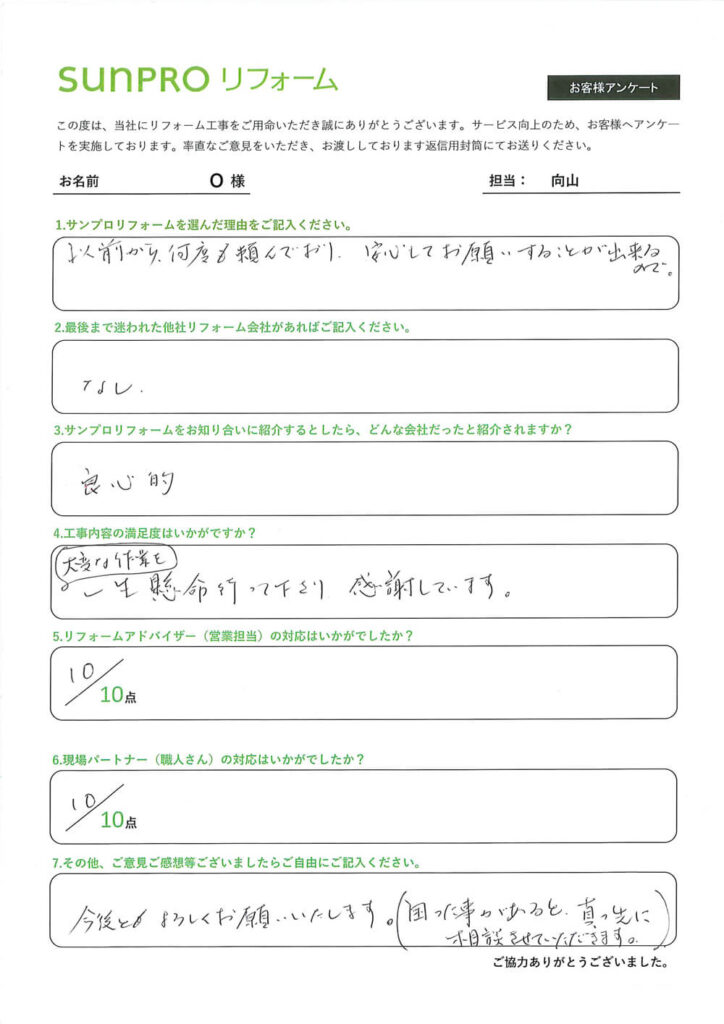 SUNPRO リフォーム
お客様アンケート
この度は、当社にリフォーム工事をご用命いただき誠にありがとうございます。サービス向上のため、お客様へアンケー
トを実施しております。率直なご意見をいただき、お渡ししております返信用封筒にてお送りください。
お名前 O 様 担当： 向山
1.サンプロリフォームを選んだ理由をご記入ください。
以前から、何度も頼んでおり、安心してお願いすることが出来る
ので。
2.最後まで迷われた他社リフォーム会社があればご記入ください。
なし.
3.サンプロリフォームをお知り合いに紹介するとしたら、どんな会社だったと紹介されますか？
良心的
4.工事内容の満足度はいかがですか？
大変な作業を
一生懸命行って下さり、感謝しています。
5.リフォームアドバイザー（営業担当）の対応はいかがでしたか？
10/10点
6.現場パートナー（職人さん）の対応はいかがでしたか？
10/10点
7.その他、ご意見ご感想等ございましたらご自由にご記入ください。
今後ともよろしくお願いいたします。(困った事があると、真っ先に
相談させていただきます。)
ご協力ありがとうございました。